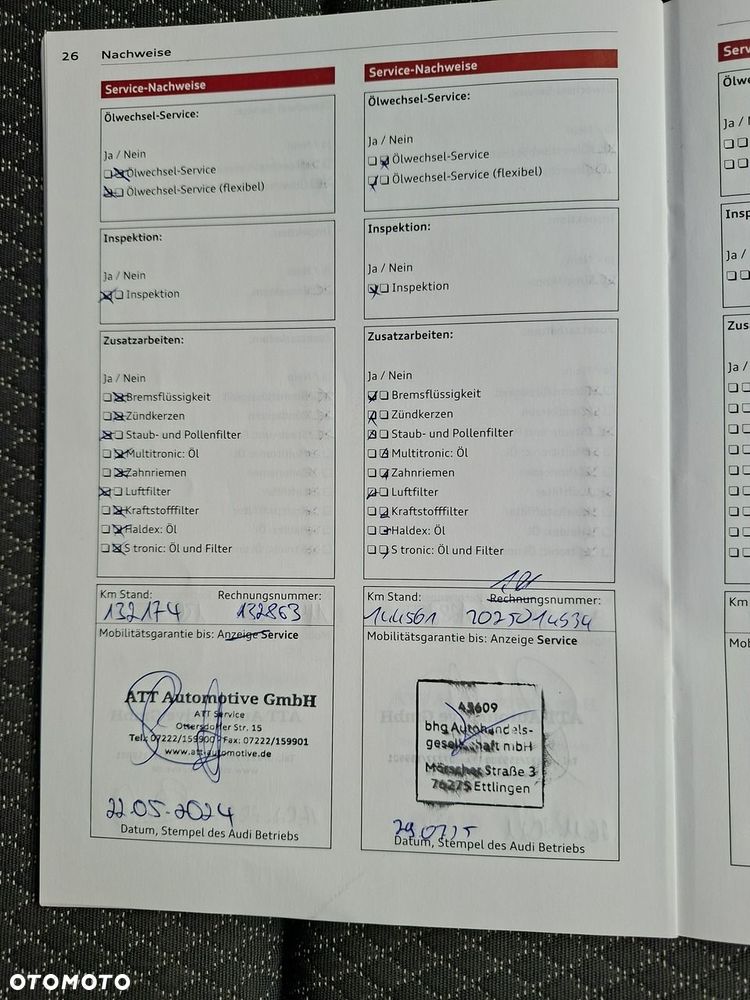 26 Nachweise
Service-Nachweise
Ölwechsel-Service:
Ja / Nein
Ölwechsel-Service
Ölwechsel-Service (flexibel)
Inspektion:
Ja / Nein
Inspektion
Zusatzarbeiten:
Ja / Nein
Bremsflüssigkeit
Zündkerzen
Staub- und Pollenfilter
Multitronic: Öl
Zahnriemen
Luftfilter
Kraftstofffilter
Haldex: Öl
S tronic: Öl und Filter
Km Stand: Rechnungsnummer:
132174 132863
Mobilitätsgarantie bis: Anzeige Service
ATT Automotive GmbH
ATT Service
Ottersdorfer Str. 15
Tel.: 07222/159900 Fax: 07222/159901
www.att-automotive.de
22.05.2024
Datum, Stempel des Audi Betriebs
Service-Nachweise
Ölwechsel-Service:
Ja / Nein
Ölwechsel-Service
Ölwechsel-Service (flexibel)
Inspektion:
Ja / Nein
Inspektion
Zusatzarbeiten:
Ja / Nein
Bremsflüssigkeit
Zündkerzen
Staub- und Pollenfilter
Multitronic: Öl
Zahnriemen
Luftfilter
Kraftstofffilter
Haldex: Öl
S tronic: Öl und Filter
Km Stand: Rechnungsnummer:
144561 2025014534
Mobilitätsgarantie bis: Anzeige Service
bhg Autohandels-
gesellschaft mbH
Mörscher Straße 3
76275 Ettlingen
Datum, Stempel des Audi Betriebs
Ja /
Km
OTOMOTO